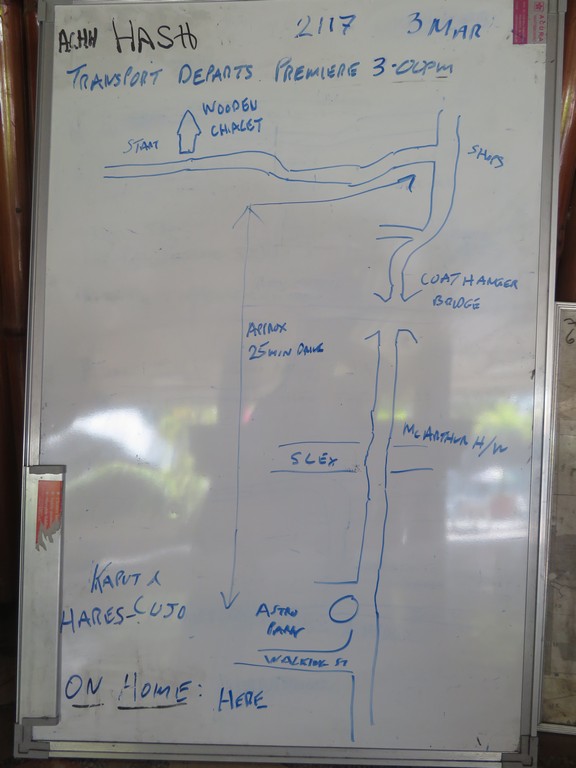 ACHW HASH 2117 3 MAR
TRANSPORT DEPARTS PREMIERE 3-00PM
WOODEN
CHALET
START
SHOPS
COATHANGER
BRIDGE
APPROX
25 MIN DRIVE
MCARTHUR H/W
SLEX
KAPUT &
HARES-CUJO
ASTRO
PARK
WALKING ST
ON HOME: HERE